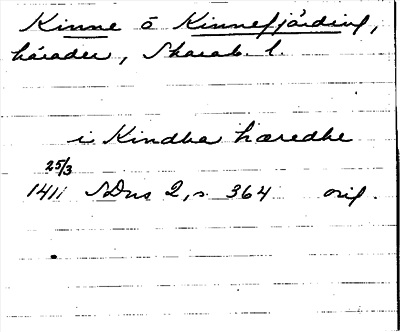 Kinne o Kinnefjärding,
härader, Skarab. l.
i Kindha hæredhe
25/3
1411 SDns 2, s. 364 orig.